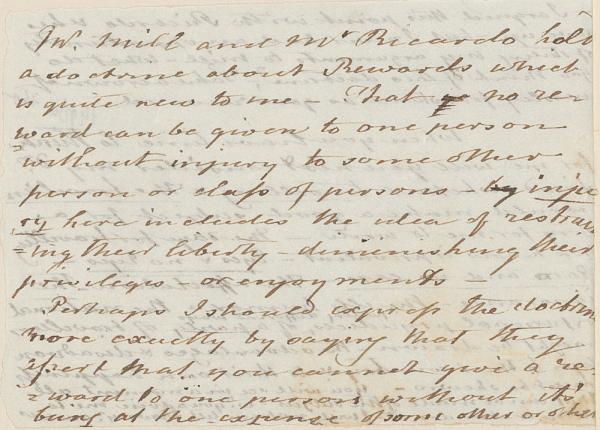 W. Mill and Mr Ricardo hold
a doctrine about Rewards which
is quite new to me – That no re-
ward can be given to one person
without injury to some other
person or class of persons – by inju
=ry here includes the idea of restrain
=ing their liberty – diminishing their
privileges – or enjoyments –
Perhaps I should express the doctrine
more exactly by saying that they
assert that you cannot give a re-
=ward to one person without its'
being at the expence of some other or other